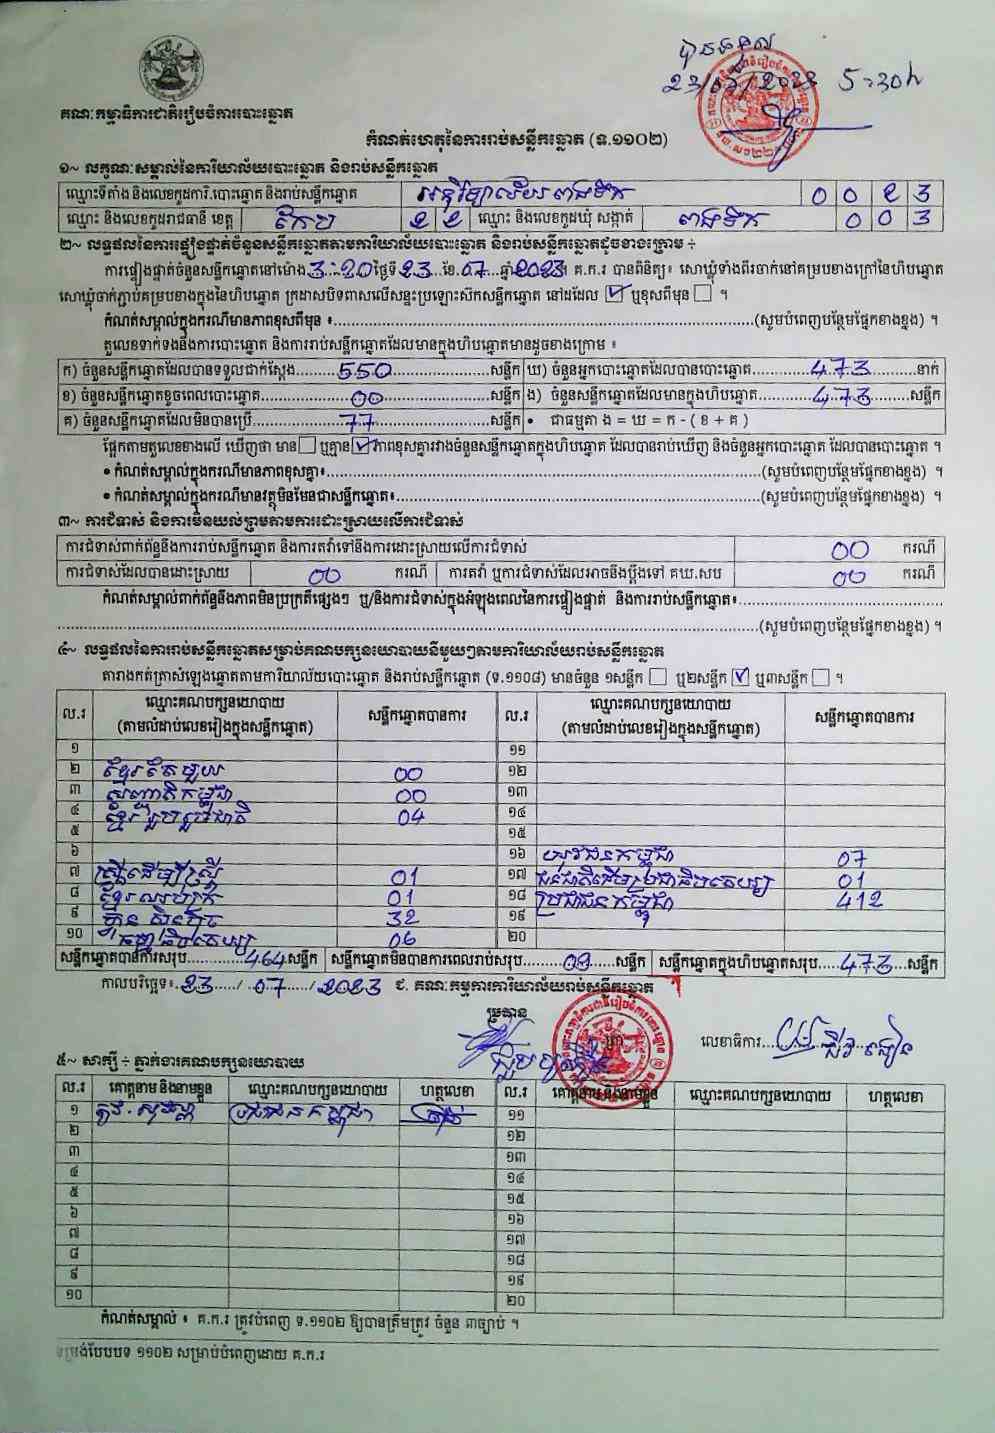 បានទទួល
23/07/2023 5:30h
គណៈកម្មាធិការជាតិរៀបចំការបោះឆ្នោត
កំណត់ហេតុនៃការរាប់សន្លឹកឆ្នោត (ទ.១១០២)
១~ លក្ខណៈសម្គាល់នៃការិយាល័យបោះឆ្នោត និងរាប់សន្លឹកឆ្នោត
ឈ្មោះទីតាំង និងលេខកូដការិ.បោះឆ្នោត និងរាប់សន្លឹកឆ្នោត អនុវិទ្យាល័យ ពងទឹក 0 0 2 3
ឈ្មោះ និងលេខកូដរាជធានី ខេត្ត កែប 2 2 ឈ្មោះ និងលេខកូដឃុំ សង្កាត់ ពងទឹក 0 0 3
២~ លទ្ធផលនៃការផ្ទៀងផ្ទាត់ចំនួនសន្លឹកឆ្នោតតាមការិយាល័យបោះឆ្នោត និងរាប់សន្លឹកឆ្នោតដូចខាងក្រោម ÷
ការផ្ទៀងផ្ទាត់ចំនួនសន្លឹកឆ្នោតនៅម៉ោង 3:20 ថ្ងៃទី 23 ខែ 07 ឆ្នាំ 2023។ គ.ក.រ បានពិនិត្យ៖ សោឃ្លុំទាំងពីរចាក់នៅគម្របខាងក្រៅនៃហិបឆ្នោត
សោឃ្លុំចាក់ភ្ជាប់គម្របខាងក្នុងនៃហិបឆ្នោត ក្រដាសបិទពាសលើសន្ទះប្រឡោះស៊កសន្លឹកឆ្នោត នៅដដែល ☑ ឬខុសពីមុន ☐ ។
កំណត់សម្គាល់ក្នុងករណីមានភាពខុសពីមុន ៖..........(សូមបំពេញបន្ថែមផ្នែកខាងខ្នង) ។
តួលេខទាក់ទងនឹងការបោះឆ្នោត និងការរាប់សន្លឹកឆ្នោតដែលមានក្នុងហិបឆ្នោតមានដូចខាងក្រោម ៖
ក) ចំនួនសន្លឹកឆ្នោតដែលបានទទួលជាក់ស្តែង........550........សន្លឹក ឃ) ចំនួនអ្នកបោះឆ្នោតដែលបានបោះឆ្នោត........473........នាក់
ខ) ចំនួនសន្លឹកឆ្នោតខូចពេលបោះឆ្នោត........00........សន្លឹក ង) ចំនួនសន្លឹកឆ្នោតដែលមានក្នុងហិបឆ្នោត........473........សន្លឹក
គ) ចំនួនសន្លឹកឆ្នោតដែលមិនបានប្រើ........77........សន្លឹក • ជាធម្មតា ង = ឃ = ក - ( ខ + គ )
ផ្អែកតាមតួលេខខាងលើ ឃើញថា មាន ☐ ឬគ្មាន ☑ ភាពខុសគ្នារវាងចំនួនសន្លឹកឆ្នោតក្នុងហិបឆ្នោត ដែលបានរាប់ឃើញ និងចំនួនអ្នកបោះឆ្នោត ដែលបានបោះឆ្នោត ។
• កំណត់សម្គាល់ក្នុងករណីមានភាពខុសគ្នា៖..........(សូមបំពេញបន្ថែមផ្នែកខាងខ្នង) ។
• កំណត់សម្គាល់ក្នុងករណីមានវត្ថុមិនមែនជាសន្លឹកឆ្នោត៖..........(សូមបំពេញបន្ថែមផ្នែកខាងខ្នង) ។
៣~ ការជំទាស់ និងការមិនយល់ព្រមតាមការដោះស្រាយលើការជំទាស់
ការជំទាស់ពាក់ព័ន្ធនឹងការរាប់សន្លឹកឆ្នោត និងការតវ៉ាទៅនឹងការដោះស្រាយលើការជំទាស់ 00 ករណី
ការជំទាស់ដែលបានដោះស្រាយ 00 ករណី ការតវ៉ា ឬការជំទាស់ដែលអាចនឹងប្តឹងទៅ គឃ.សប 00 ករណី
កំណត់សម្គាល់ពាក់ព័ន្ធនឹងភាពមិនប្រក្រតីផ្សេងៗ ឬ/និងការជំទាស់ក្នុងអំឡុងពេលនៃការផ្ទៀងផ្ទាត់ និងការរាប់សន្លឹកឆ្នោត៖..........
..........(សូមបំពេញបន្ថែមផ្នែកខាងខ្នង) ។
៤~ លទ្ធផលនៃការរាប់សន្លឹកឆ្នោតសម្រាប់គណបក្សនយោបាយនីមួយៗតាមការិយាល័យរាប់សន្លឹកឆ្នោត
តារាងកត់ត្រាសំឡេងឆ្នោតតាមការិយាល័យបោះឆ្នោត និងរាប់សន្លឹកឆ្នោត (ទ.១១០៨) មានចំនួន ១សន្លឹក ☐ ឬ២សន្លឹក ☑ ឬ៣សន្លឹក ☐ ។
ល.រ ឈ្មោះគណបក្សនយោបាយ (តាមលំដាប់លេខរៀងក្នុងសន្លឹកឆ្នោត) សន្លឹកឆ្នោតបានការ ល.រ ឈ្មោះគណបក្សនយោបាយ (តាមលំដាប់លេខរៀងក្នុងសន្លឹកឆ្នោត) សន្លឹកឆ្នោតបានការ
១ ១១
២ ខ្មែរតែមួយ 00 ១២
៣ សញ្ជាតិកម្ពុជា 00 ១៣
៤ ខ្មែរ រួបរួមជាតិ 04 ១៤
៥ ១៥
៦ ១៦ យុវជនកម្ពុជា 07
៧ ស្ត្រីដើម្បីស្ត្រី 01 ១៧ ជនជាតិដើមប្រជាធិបតេយ្យ 01
៨ ខ្មែរឈប់ក្រ 01 ១៨ ប្រជាជនកម្ពុជា 412
៩ ហ្វ៊ុនស៊ិនប៉ិច 32 ១៩
១០ កម្លាំងប្រជាធិបតេយ្យ 06 ២០
សន្លឹកឆ្នោតបានការសរុប........464សន្លឹក សន្លឹកឆ្នោតមិនបានការពេលរាប់សរុប........09......សន្លឹក សន្លឹកឆ្នោតក្នុងហិបឆ្នោតសរុប.....473...សន្លឹក
កាលបរិច្ឆេទ៖ 23 / 07 / 2023 ជ. គណៈកម្មការការិយាល័យរាប់សន្លឹកឆ្នោត
ប្រធាន លេខាធិការ
៥~ សាក្សី ÷ ភ្នាក់ងារគណបក្សនយោបាយ
ល.រ គោត្តនាម និងនាមខ្លួន ឈ្មោះគណបក្សនយោបាយ ហត្ថលេខា ល.រ គោត្តនាម និងនាមខ្លួន ឈ្មោះគណបក្សនយោបាយ ហត្ថលេខា
១ ប្រជាជនកម្ពុជា ១១
២ ១២
៣ ១៣
៤ ១៤
៥ ១៥
៦ ១៦
៧ ១៧
៨ ១៨
៩ ១៩
១០ ២០
កំណត់សម្គាល់ ៖ គ.ក.រ ត្រូវបំពេញ ទ.១១០២ ឱ្យបានត្រឹមត្រូវ ចំនួន ៣ច្បាប់ ។
ទម្រង់បែបបទ ១១០២ សម្រាប់បំពេញដោយ គ.ក.រ